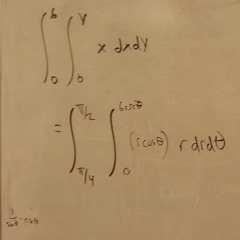 ∫₀⁶ ∫₀ʸ x dx dy
= ∫_{π/4}^{π/2} ∫₀^{6cscθ} (rcosθ) r dr dθ